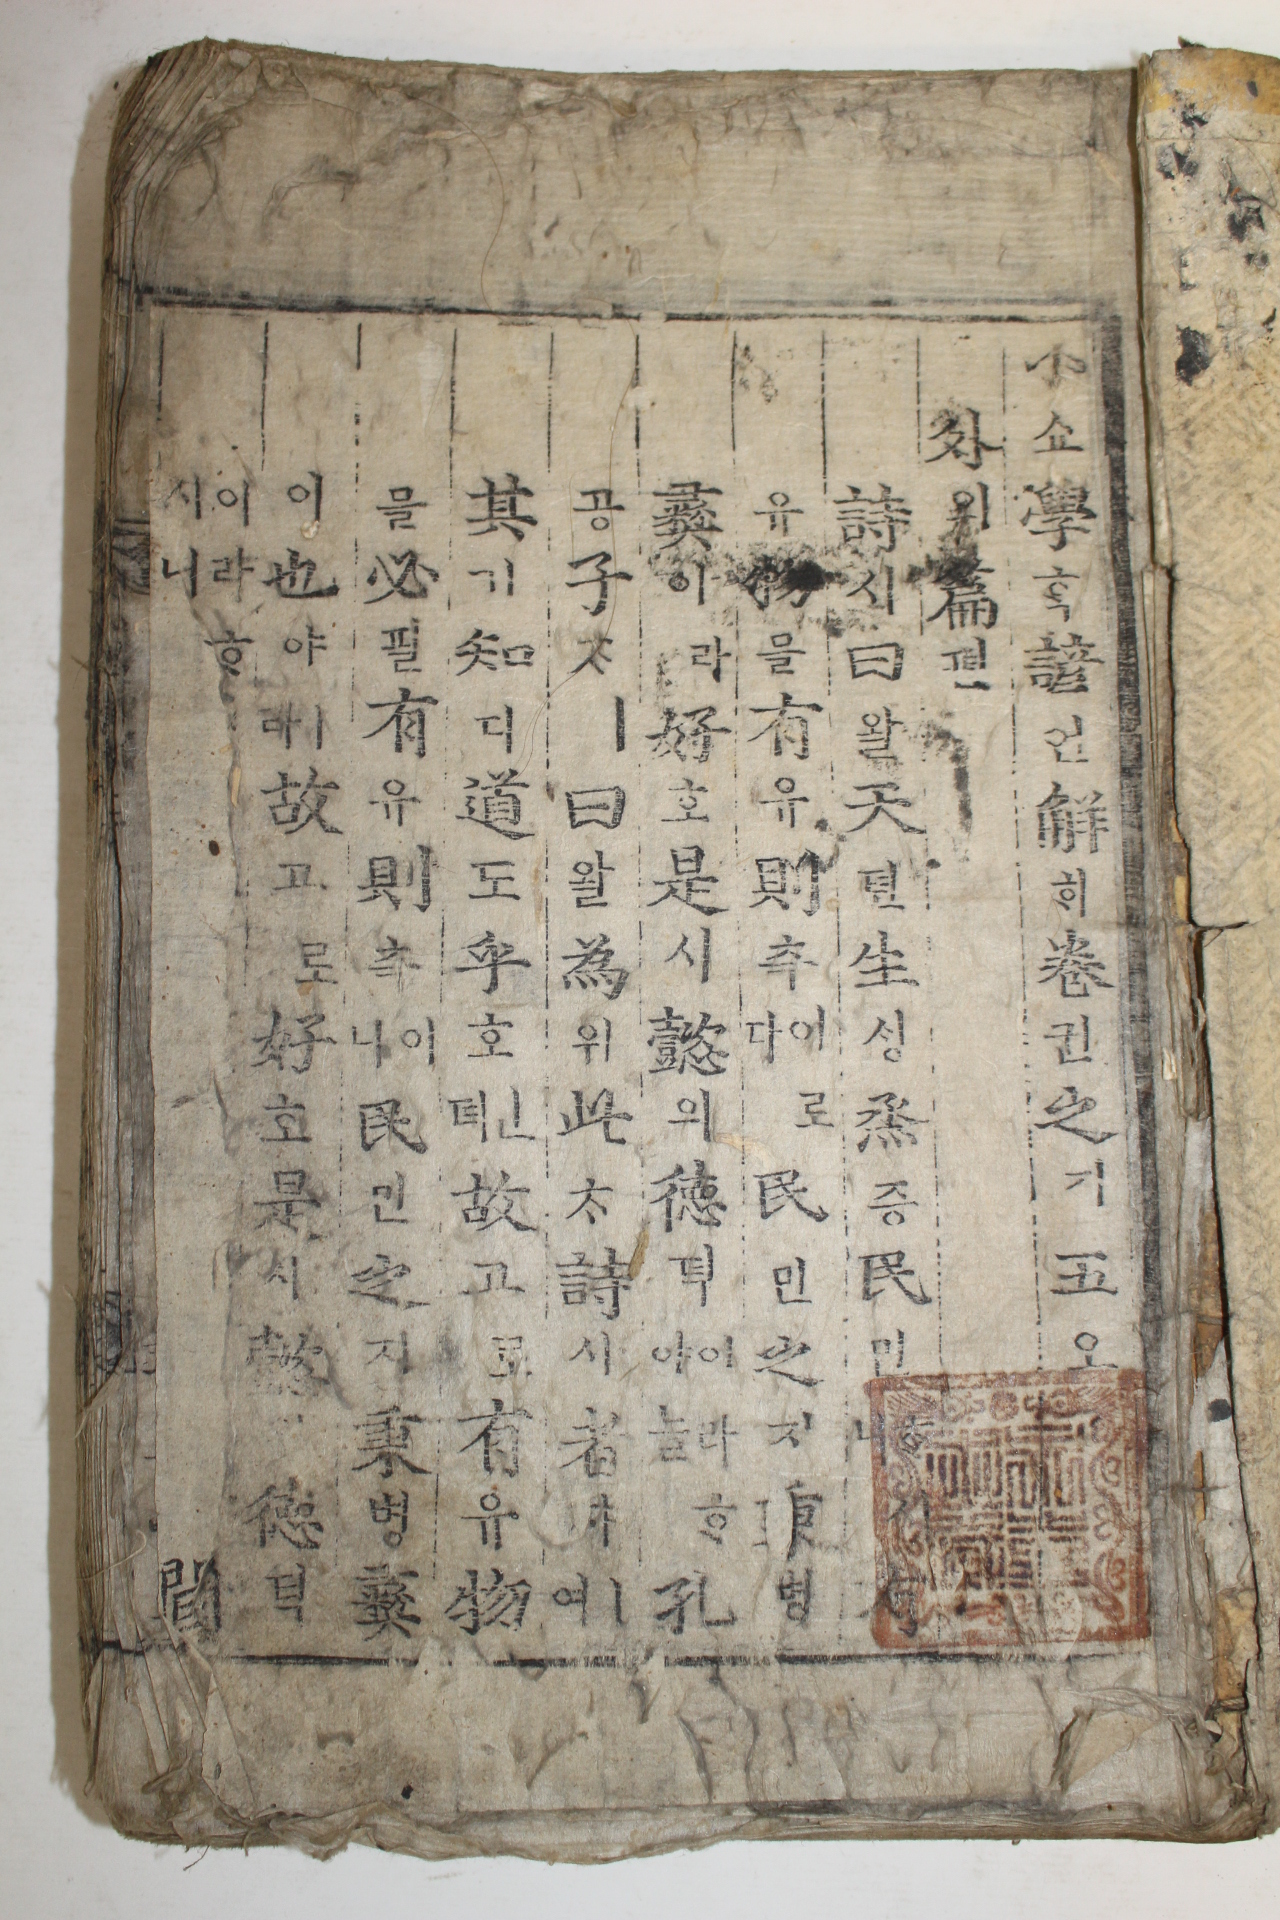 小쇼學ᄒᆞᆨ諺언解ᄒᆡ卷권之지五오
外외篇편
詩시曰왈天텬生ᄉᆡᆼ烝증民민ᄒᆞ시니有
유物믈有유則측이로다民민之지秉병
彛이라好호是시懿의德덕이라ᄒᆞ야ᄂᆞᆯ孔
공子ᄌᆞㅣ曰왈為위此ᄎᆞ詩시者쟈ㅣ여
其기知디道도乎호ㅣㄴ뎌故고로有유物
믈必필有유則측이니民민之지秉병彛
이也야ㅣ라故고로好호是시懿의德덕
이라ᄒᆞ시니